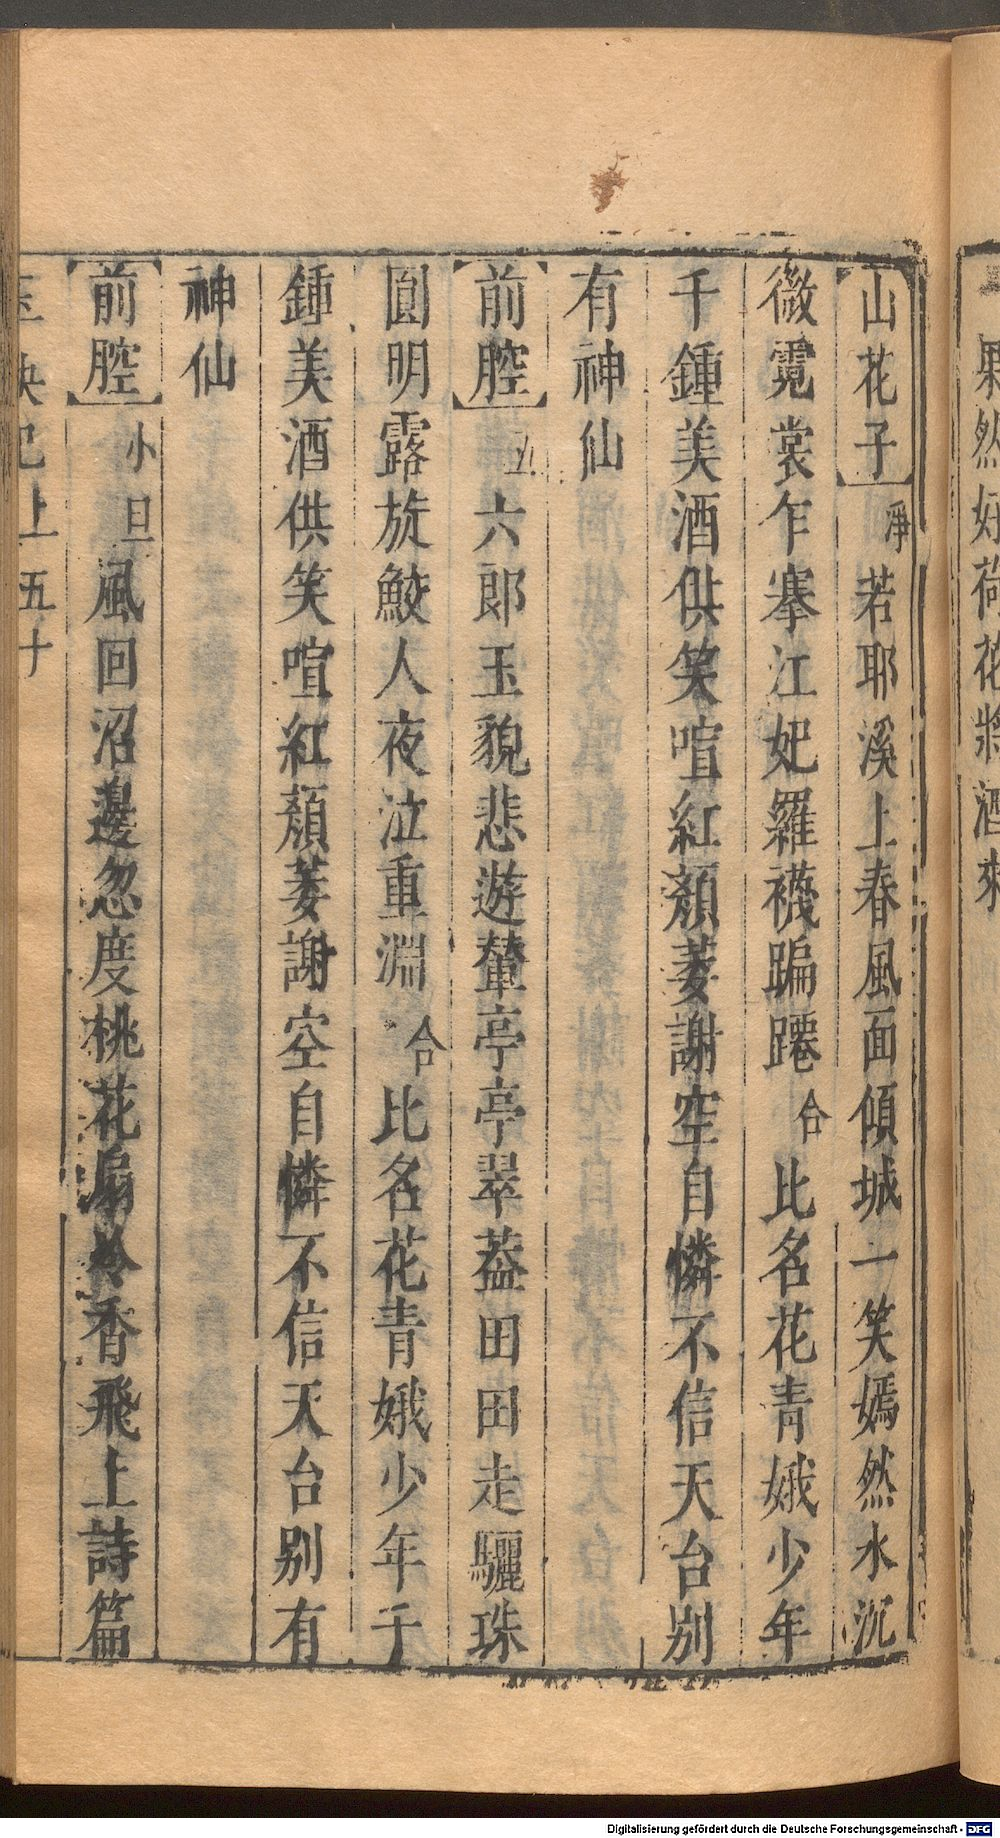 果然好荷花將酒來
【山花子】淨若耶溪上春風面傾城一笑嫣然水沉
微霓裳乍搴江妃羅襪蹁躚合比名花青娥少年
千鍾美酒供笑喧紅顏萎謝空自憐不信天台別
有神仙
【前腔】五六郎玉貌悲遊輦亭亭翠葢田田走驪珠
圓明露旋鮫人夜泣重淵合比名花青娥少年千
鍾美酒供笑喧紅顏萎謝空自憐不信天台別有
神仙
【前腔】小旦風回沼邊忽度桃花扇冷香飛上詩篇
玉玦記上五十
Digitalisierung gefördert durch die Deutsche Forschungsgemeinschaft - DFG